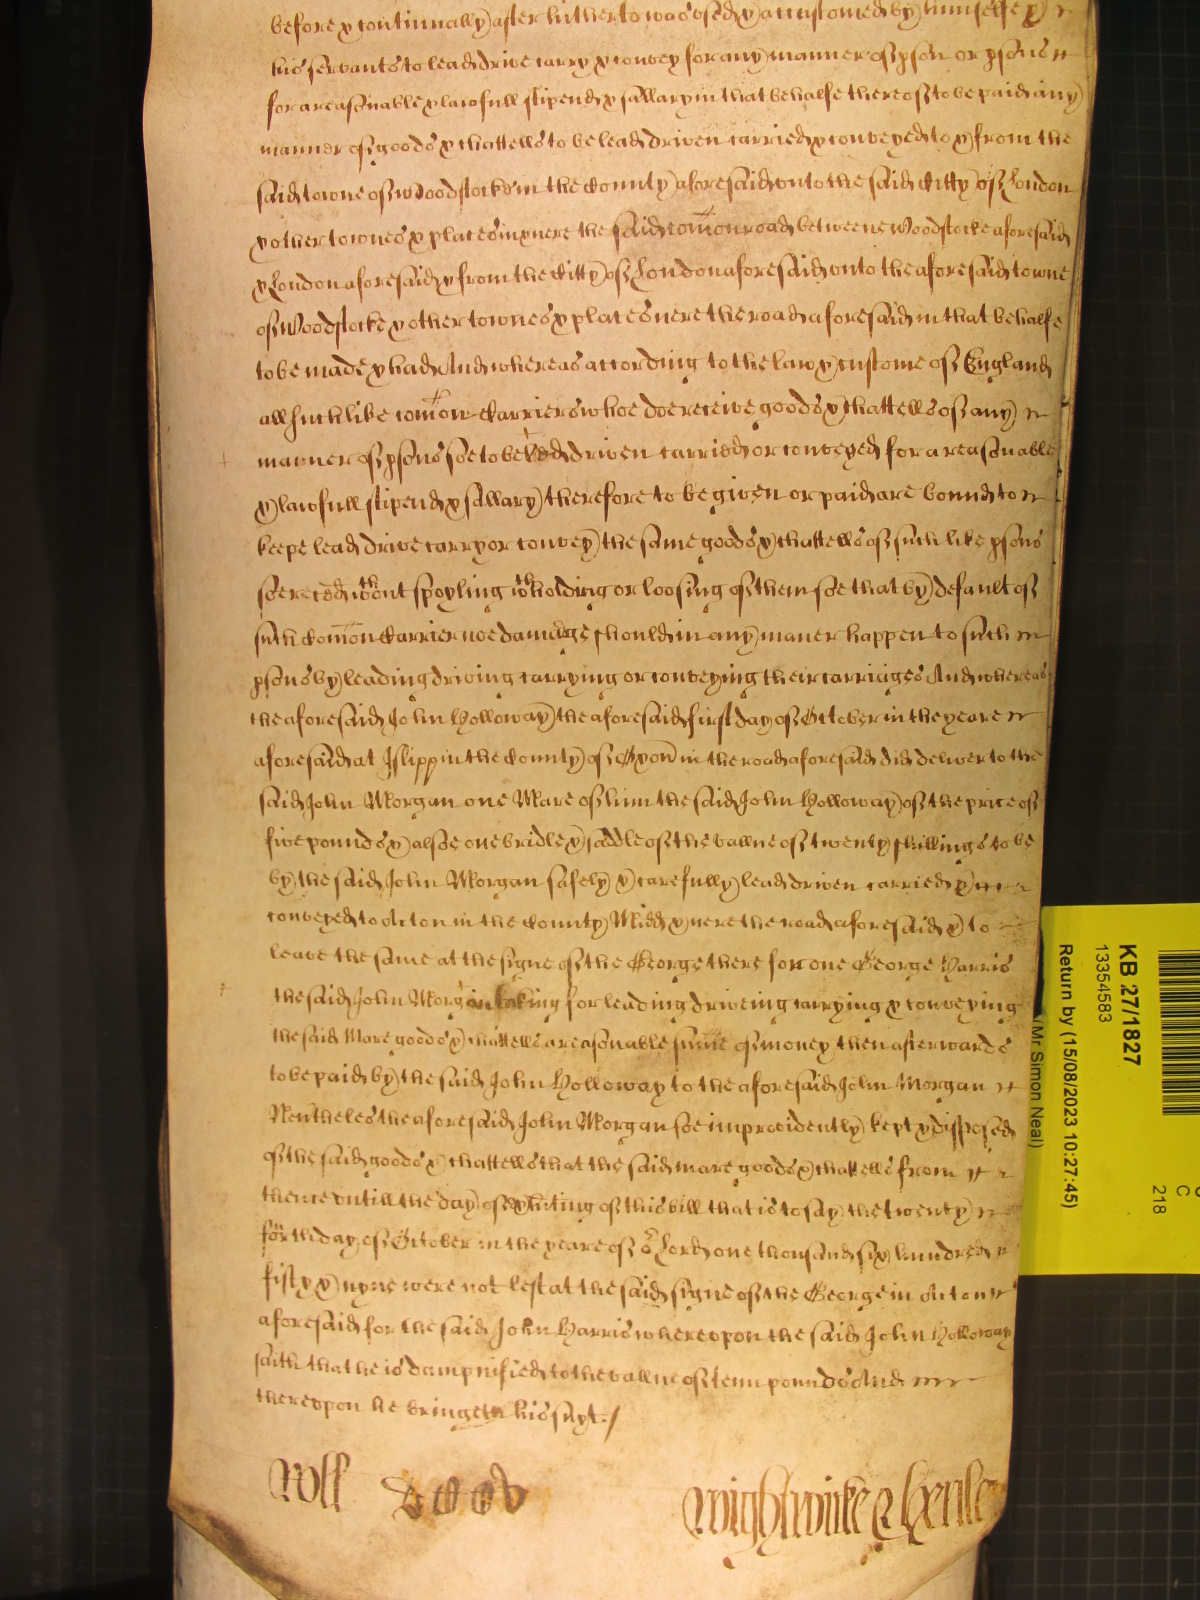 before & continually after hitherto was used & accustomed by himselfe &
his servants to lead drive carry & convey for any manner of pson or psons
for a reasonable & lawfull stipend & sallary in that behalfe thereof to be paid any
manner of goods & chattells to be lead driven carried & conveyed to & from the
said towne of Woodstocke in the County aforesaid unto the said Citty of London
& other townes & places in & nere the said com̄on road betweene Woodstocke aforesaid
& London aforesaid & from the Citty of London aforesaid unto the aforesaid towne
of Woodstocke & other townes & places nere the road aforesaid in that behalfe
to be made & had And whereas according to the law & custome of England
all such like com̄on Carriers whoe doe receive goods & chattells of any
manner of psons soe to be led driven carried or conveyed for a reasonable
& lawfull stipend & sallary therefore to be given or paid are bound to
keepe lead drive carry or convey the same goods & chattells of such like psons
soe reced wthout spoyling wthholding or loosing of them soe that by default of
such Com̄on Carrier noe damage should in any maner happen to such
psons by leading driving carrying or conveying their carriages And whereas
the aforesaid John Holloway the aforesaid first day of October in the yeare
aforesaid at Islipp in the County of Oxon in the road aforesaid did deliver to the
said John Morgan one Mare of him the said John Holloway of the price of
five pounds & alsoe one bridle & saddle of the vallue of twenty shillings to be
by the said John Morgan safely & carefully lead driven carried &
conveyed to Acton in the County Midd & nere the road aforesaid & to
leave the same at the signe of the George there for one George Harris
the said John Morgan taking for leading driveing carrying & conveying
the said Mare goods & chattells a reasonable sum̄e of money then afterwards
to be paid by the said John Holloway to the aforesaid John Morgan
Nevtheles the aforesaid John Morgan soe improvidently kept & disposed
of the said goods & chattells that the said mare goods & chattells from
thence untill the day of exhiting of this bill that is to say the twenty
forth day of October in the yeare of or Lord one thousand six hundred
fifty & nyne were not left at the said signe of the George in Acton
aforesaid for the said John Harris whereupon the said John Holloway
saith that he is dampnified to the vallue of tenn pounds And
thereupon he bringeth his suyt./
Roll
Wightwicke &
KB 27/1827
13354583
Return by (15/08/2023 10:27:45)
(Mr Simon Neal)
C
218